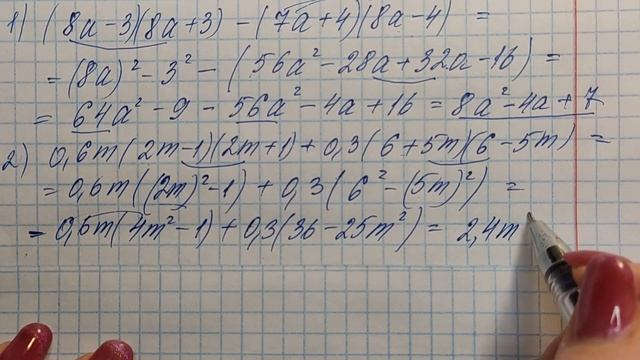 1) (8a-3)(8a+3) - (7a+4)(8a-4) =
= (8a)² - 3² - (56a² - 28a + 32a - 16) =
= 64a² - 9 - 56a² - 4a + 16 = 8a² - 4a + 7
2) 0,6m(2m-1)(2m+1) + 0,3(6+5m)(6-5m) =
= 0,6m((2m)² - 1) + 0,3(6² - (5m)²) =
= 0,6m(4m² - 1) + 0,3(36 - 25m²) = 2,4m